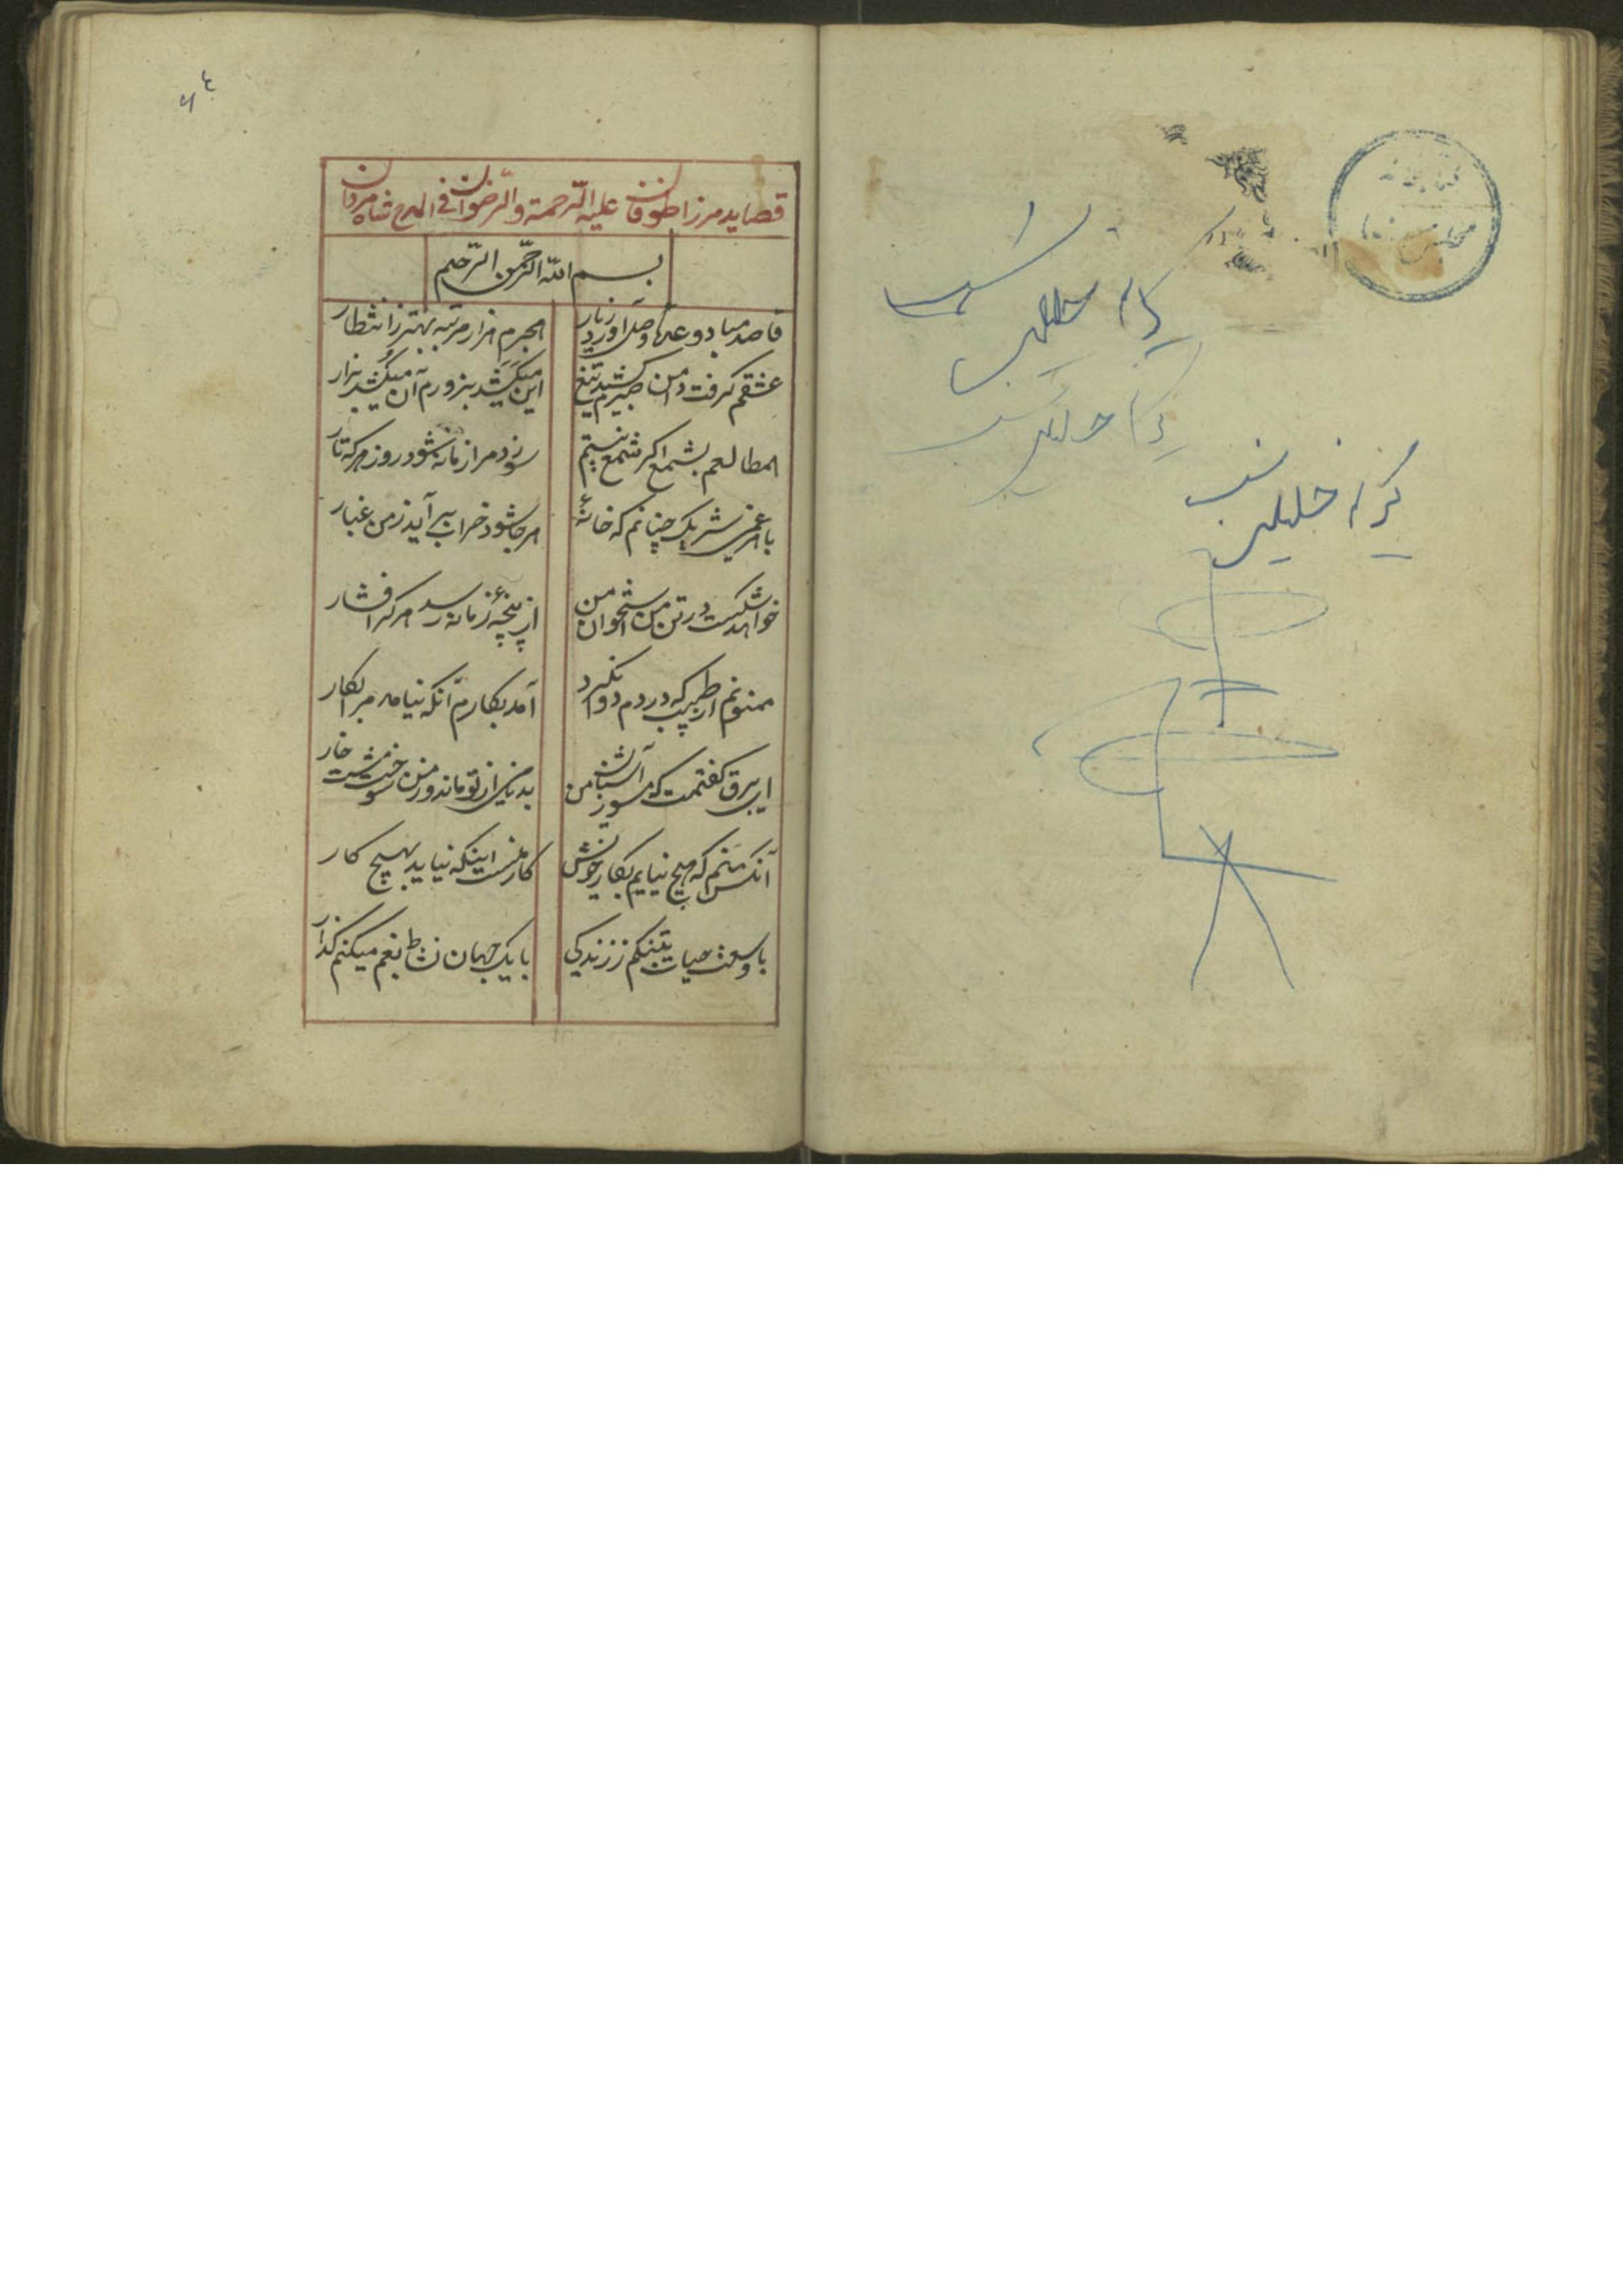 کتابخانه
مجلس
قصاید مرزا طوفان علیه الرحمة والرضوان فی المدح شاه مردان
بسم الله الرحمن الرحیم
قاصد مباد وعدهٔ وصل آورد ز یار
هجرم هزار مرتبه بهتر ز انتظار
عشقم گرفت دامن و صبرم کشید تیغ
این میکَشد بزورم آن میکُشد بزار
طالعم بشمع اگر شمع نیستم
سوزد مرا زمانه شود روز هر که تار
با هر غمی شریک چنانم که خانهٔ
هر جا شود خراب بر آید ز من غبار
خواهد شکست در تن من استخوان من
از پنجهٔ زمانه رسد هر کرا فشار
ممنونم از طبیب که دردم دوا نکرد
آمد بکارم آنکه نیامد مرا بکار
ای برق گفتمت که مسوز آشیان من
بدنامی از تو ماند و ز من سوخت مشت خار
آنکس منم که هیچ نیایم بکار خویش
کار منست اینکه نیاید بهیچ کار
با وسعت حیات بتنگم ز زندگی
با یک جهان نشاط بغم میکنم گذار